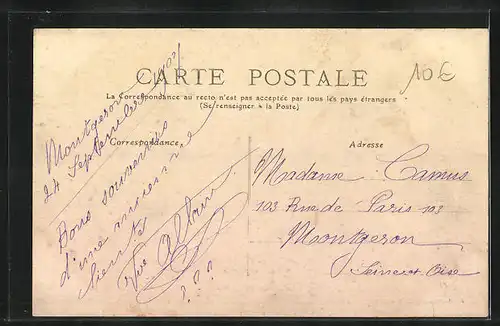 CARTE POSTALE
10€
La Correspondance au recto n'est pas acceptée par tous les pays étrangers
(Se renseigner à la Poste)
Correspondance
Adresse
Montgeron
24 Septembre
Bons souvenirs
d'une ancienne
Vve
? ? ?
Madame Camus
103 Rue de Paris 103
Montgeron
Seine et Oise